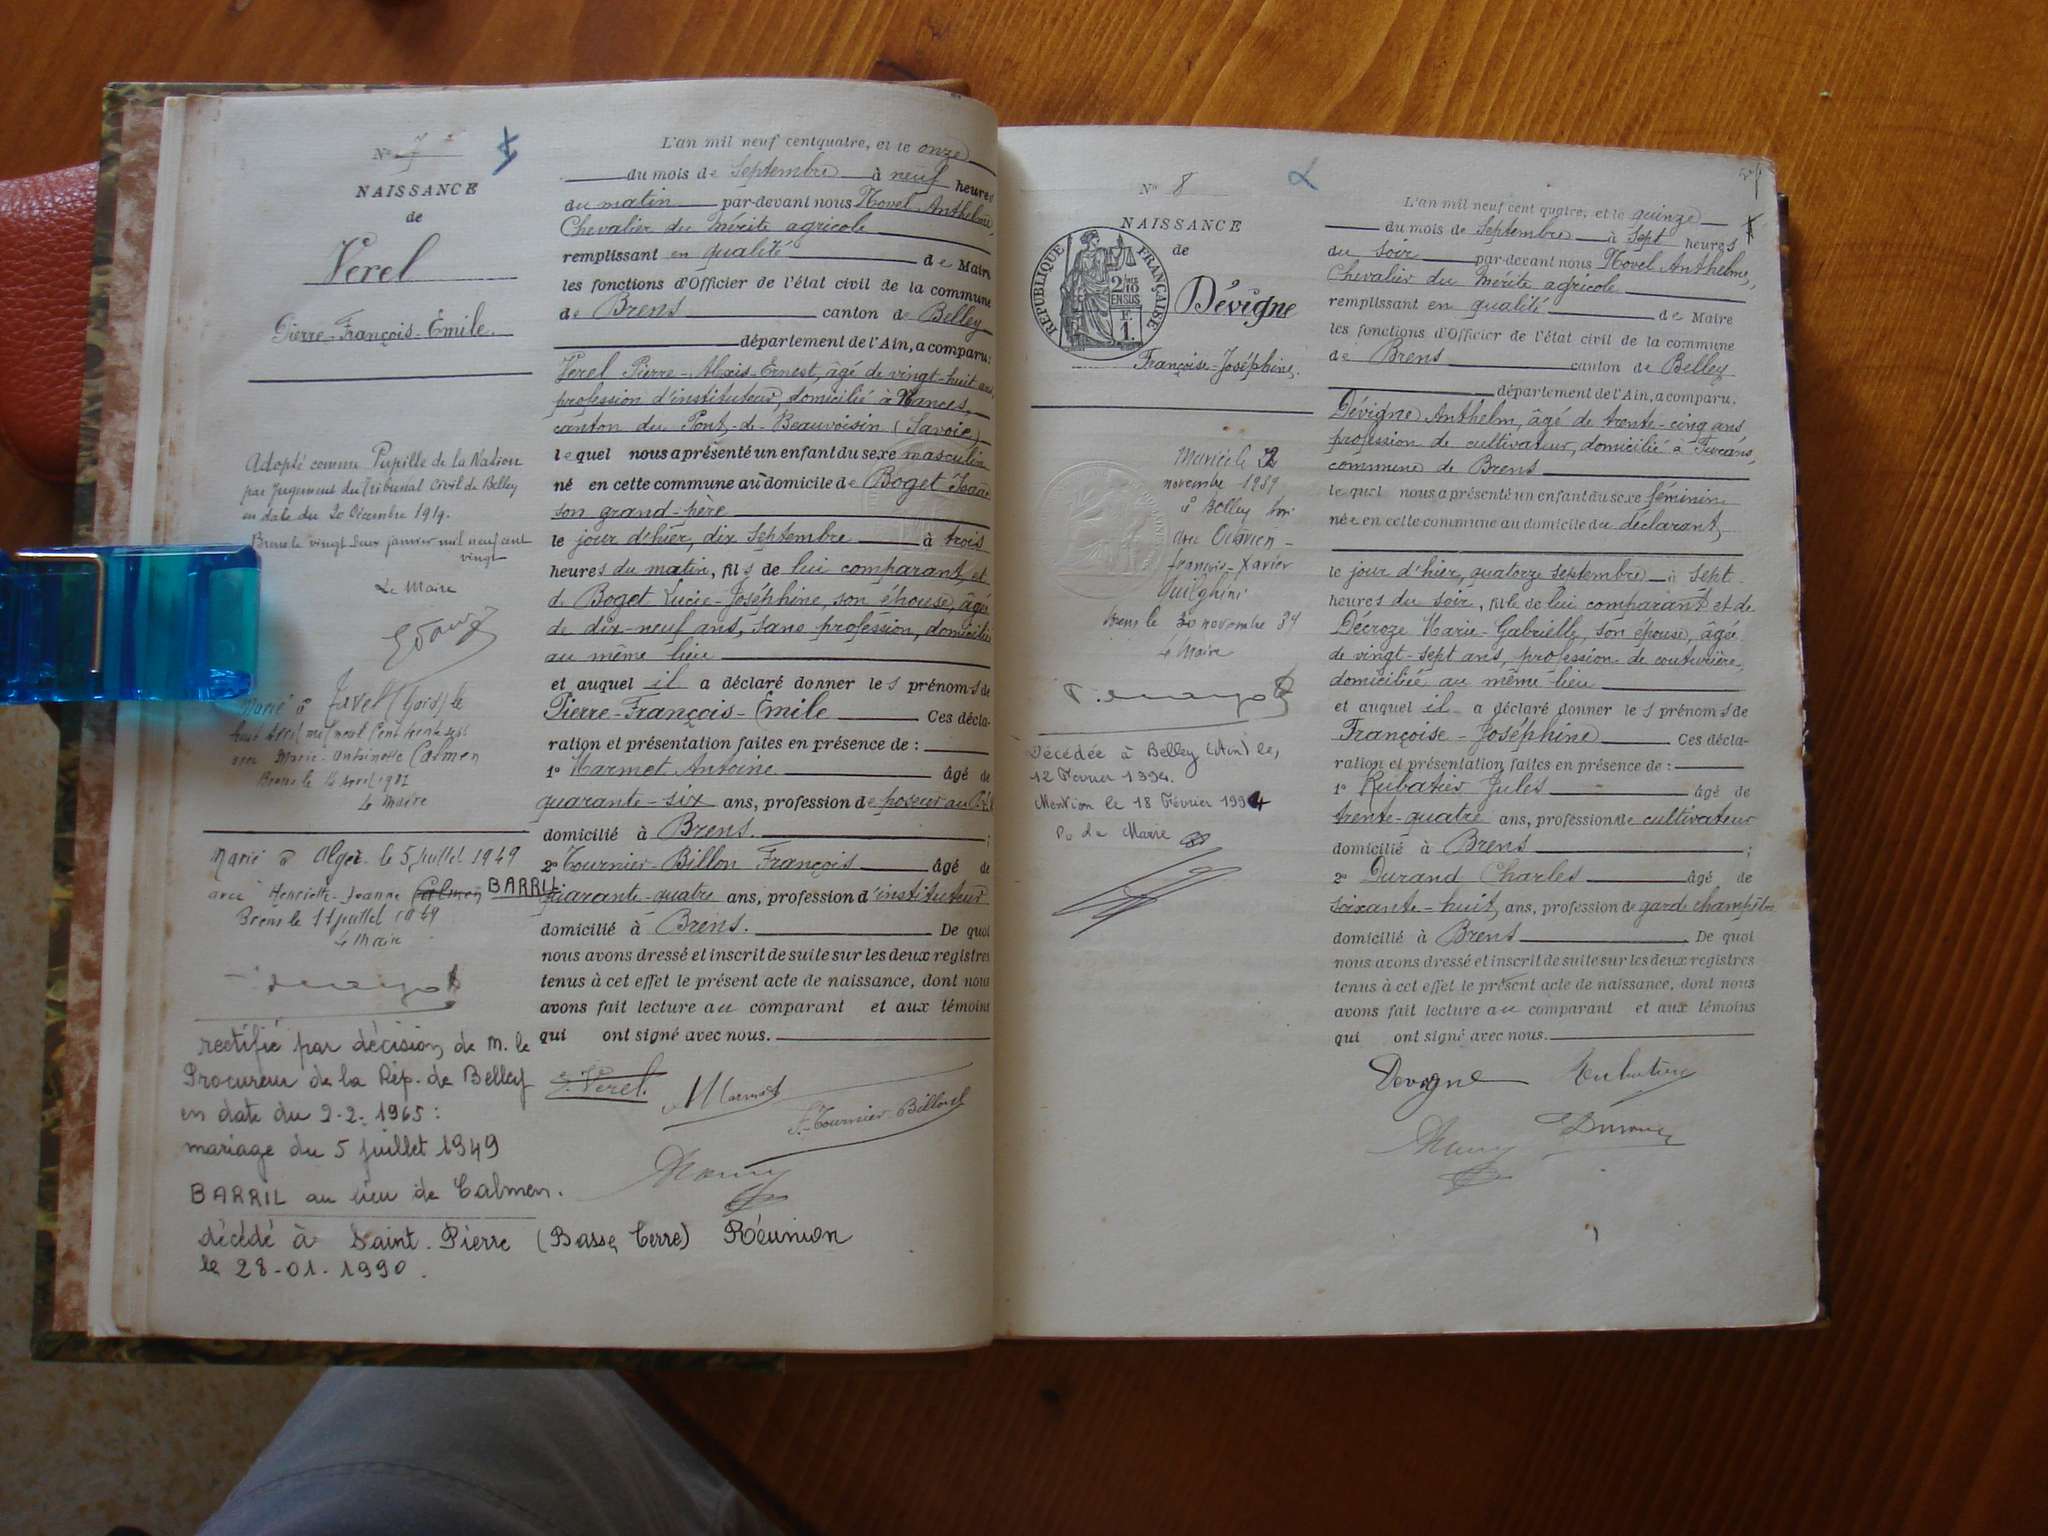 Nº 7
NAISSANCE
de
Verel
Pierre-François-Émile.
Adopté comme Pupille de la Nation
par Jugement du Tribunal Civil de Belley
en date du 20 Décembre 1919.
Brens le vingt deux janvier mil neuf cent
vingt
Le Maire
Marié à Javel (Paris) le
huit avril mil neuf cent trente
avec Marie-Antoinette Calmen
Brens le avril
Le Maire
Marié à Alger le 5 juillet 1949
avec Henriette-Jeanne Calmen BARRIL.
Brens le 11 juillet 1949
Le Maire
rectifié par décision de M. le
Procureur de la Rép. de Belley
en date du 2-2-1965:
mariage du 5 juillet 1949
BARRIL au lieu de Calmen.
décédé à Saint-Pierre (Basse Terre) Réunion
le 28-01-1990.
L'an mil neuf cent quatre, et le onze
du mois de Septembre à neuf heures
du matin par-devant nous Hovel Anthelme,
Chevalier du Mérite agricole
remplissant en qualité de Maire
les fonctions d'Officier de l'état civil de la commune
de Brens canton de Belley
département de l'Ain, a comparu:
Verel Pierre-Alexis-Ernest, âgé de vingt-huit ans,
profession d'instituteur, domicilié à Nances,
canton du Pont-de-Beauvoisin (Savoie)
lequel nous a présenté un enfant du sexe masculin
né en cette commune au domicile de Boget Isaac
son grand-père
le jour d'hier, dix Septembre à trois
heures du matin, fils de lui comparant, et
de Boget Lucie-Joséphine, son épouse, âgée
de dix-neuf ans, sans profession, domiciliée
au même lieu
et auquel il a déclaré donner les prénoms de
Pierre-François-Émile Ces décla-
ration et présentation faites en présence de :
1º Marmet Antoine âgé de
quarante-six ans, profession de poseur au
domicilié à Brens. ;
2º Tournier-Billon François âgé de
quarante-quatre ans, profession d'instituteur
domicilié à Brens. De quoi
nous avons dressé et inscrit de suite sur les deux registres
tenus à cet effet le présent acte de naissance, dont nous
avons fait lecture au comparant et aux témoins
qui ont signé avec nous.
Verel. Marmet
F. Tournier-Billon
Nº 8
NAISSANCE
de
RÉPUBLIQUE FRANÇAISE
2/10
EN SUS
1.
Dévigne
Françoise-Joséphine.
Mariée le
novembre 1939
à Belley
avec Octavien-
François-Xavier
Quilghini
Brens le 30 novembre 39
Le Maire
Décédée à Belley (Ain) le,
12 Février 1994.
Mention le 18 Février 1994
Le Maire
L'an mil neuf cent quatre, et le quinze
du mois de Septembre à sept heures
du soir par-devant nous Hovel Anthelme,
Chevalier du Mérite agricole
remplissant en qualité de Maire
les fonctions d'Officier de l'état civil de la commune
de Brens canton de Belley
département de l'Ain, a comparu.
Dévigne Anthelm, âgé de trente-cinq ans
profession de cultivateur, domicilié à
commune de Brens
lequel nous a présenté un enfant du sexe féminin
née en cette commune au domicile du déclarant,
le jour d'hier, quatorze Septembre à sept
heures du soir, fille de lui comparant et de
Décroze Marie-Gabrielle, son épouse, âgée
de vingt-sept ans, profession de couturière,
domiciliée au même lieu
et auquel il a déclaré donner les prénoms de
Françoise-Joséphine Ces décla-
ration et présentation faites en présence de :
1º Rubatier Jules âgé de
trente-quatre ans, profession de cultivateur
domicilié à Brens ;
2º Durand Charles âgé de
soixante-huit, ans, profession de garde champêtre
domicilié à Brens De quoi
nous avons dressé et inscrit de suite sur les deux registres
tenus à cet effet le présent acte de naissance, dont nous
avons fait lecture au comparant et aux témoins
qui ont signé avec nous.
Devigne Rubatier
Durand